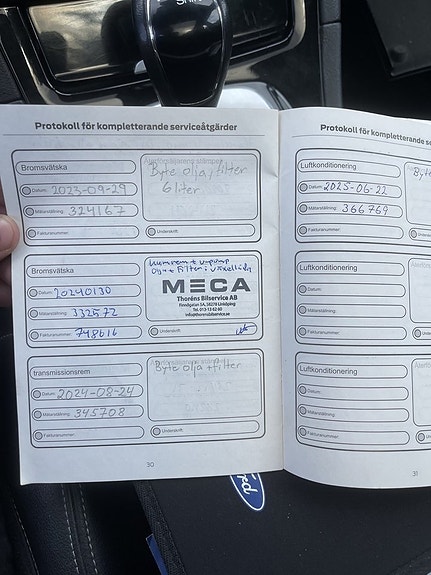 Protokoll för kompletterande serviceåtgärder
Bromsvätska
Datum: 2023-09-29
Mätarställning: 324167
Fakturanummer:
Återförsäljarens stämpel
Byte olja, filter
6 liter
Underskrift:
Bromsvätska
Datum: 20240130
Mätarställning: 332572
Fakturanummer: 748616
Kamrem + v.pump
Olja + Filter i växellåda
MECA
Thoréns Bilservice AB
Finnögatan 5A, 58278 Linköping
Tel. 013-13 82 80
info@thorensbilservice.se
Underskrift:
transmissionsrem
Datum: 2024-08-24
Mätarställning: 345708
Fakturanummer:
Byte olja + filter
Underskrift:
30
Protokoll för kompletterande se
Luftkonditionering
Datum: 2025-06-22
Mätarställning: 366769
Fakturanummer:
Återför
Byt
Luftkonditionering
Datum:
Mätarställning:
Fakturanummer:
Återför
Luftkonditionering
Datum:
Mätarställning:
Fakturanummer:
Återför
31
Ford